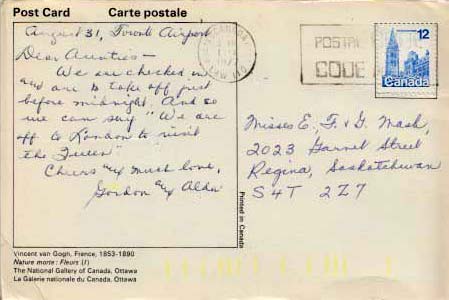 Post Card Carte postale
August 31, Toronto Airport
Dear Aunties -
We are checked in
and are to take off just
before midnight. And so
we can say "We are
off to London to visit
the Queen"
Cheers and much love,
Gordon and Alda
Vincent van Gogh, France, 1853-1890
Nature morte: Fleurs (I)
The National Gallery of Canada, Ottawa
La Galerie nationale du Canada, Ottawa
Printed in Canada
CANADA
POSTAL
CODE
12
Canada
Misses E, F & G. Mash,
2023 Garnet Street
Regina, Saskatchewan
S4T 2Z7